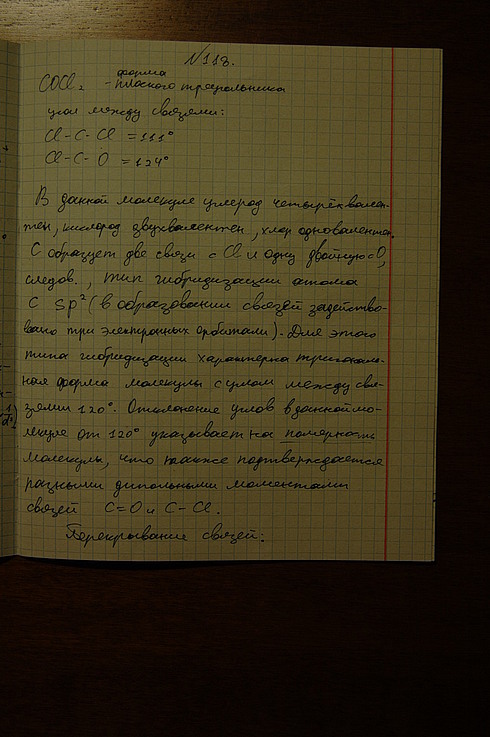 №118.
форма
COCl₂ - плоского треугольника
угол между связями:
Cl - C - Cl = 111°
Cl - C - O = 124°
В данной молекуле углерод четырёхвален-
тен, кислород двухвалентен, хлор одновалентен.
C образует две связи с Cl и одну двойную с O,
следов., тип гибридизации атома
C sp² (в образовании связей задейство-
вано три электронных орбитали). Для этого
типа гибридизации характерна тригональ-
ная форма молекулы с углом между свя-
зями 120°. Отклонение углов в данной мо-
лекуле от 120° указывает на полярность
молекулы, что также подтверждается
разными дипольными моментами
связей C=O и C-Cl.
Перекрывание связей: